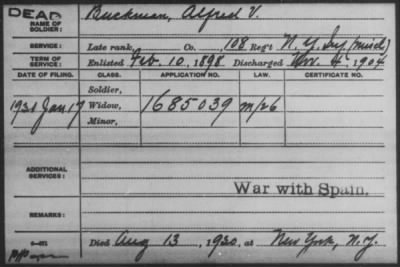 DEAD
NAME OF SOLDIER: Buckman, Alfred V.
SERVICE: Late rank, Co. , 108 Reg't N. Y. Inf (misc)
TERM OF SERVICE: Enlisted Feb. 10, 1898 Discharged Nov. 4, 1904
DATE OF FILING. CLASS. APPLICATION NO. LAW. CERTIFICATE NO.
Soldier,
1931 Jan 17 Widow, 1685039 m/26
Minor,
ADDITIONAL SERVICES:
War with Spain.
REMARKS:
Died Aug 13, 1930, at New York, N.Y.